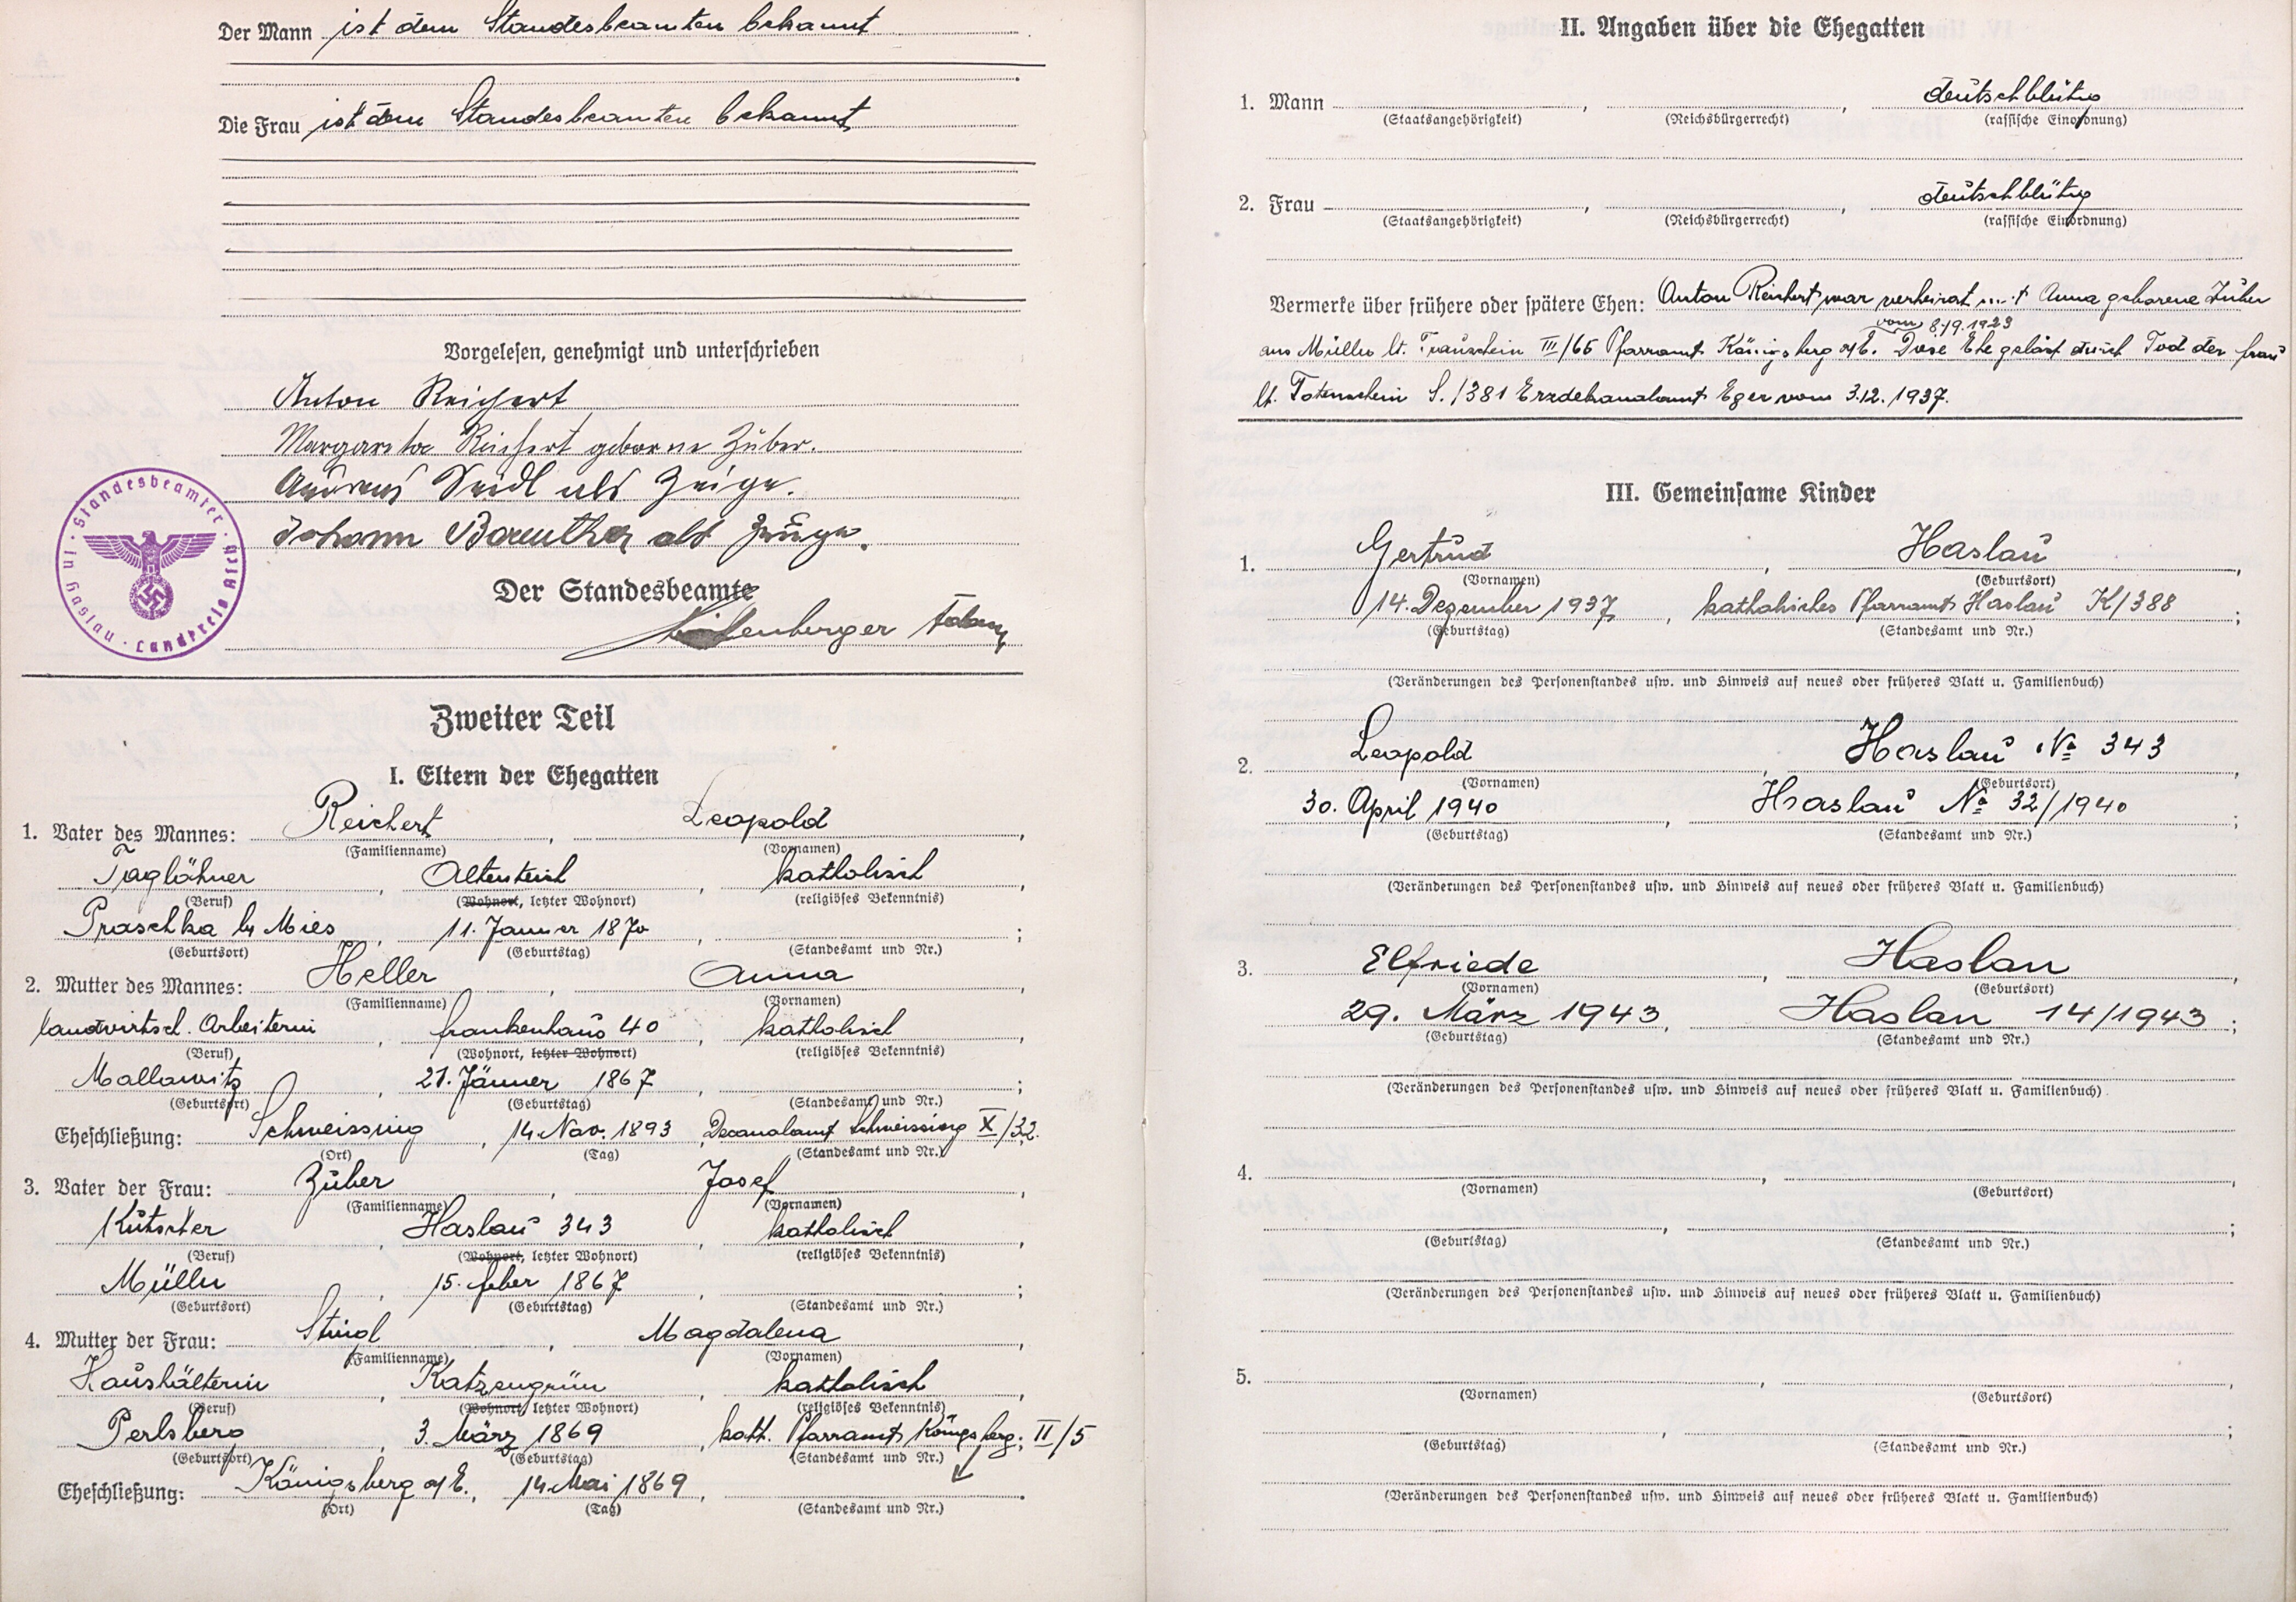 Der Mann ist dem Standesbeamten bekannt
Die Frau ist dem Standesbeamten bekannt
Vorgelesen, genehmigt und unterschrieben
Anton Reichert
Margareta Reichert geborne Züber.
Andreas Seidl als Zeuge.
Johann Bareuther als Zeuge.
Standesbeamter · in Haslau · Landkreis Asch
Der Standesbeamte
Adam
Zweiter Teil
I. Eltern der Ehegatten
1. Vater des Mannes: Reichert, Leopold,
(Familienname) (Vornamen)
Taglöhner, Altenteich, katholisch,
(Beruf) (Wohnort, letzter Wohnort) (religiöses Bekenntnis)
Praschka by Mies, 11. Jänner 1870, ;
(Geburtsort) (Geburtstag) (Standesamt und Nr.)
2. Mutter des Mannes: Heller, Anna,
(Familienname) (Vornamen)
landwirtsch. Arbeiterin, Frankenhaus 40, katholisch,
(Beruf) (Wohnort, letzter Wohnort) (religiöses Bekenntnis)
Mallowitz, 21. Jänner 1867, ;
(Geburtsort) (Geburtstag) (Standesamt und Nr.)
Eheschließung: Schweissing, 14 Nov. 1893, Decanalamt Schweissing X/32.
(Ort) (Tag) (Standesamt und Nr.)
3. Vater der Frau: Züber, Josef,
(Familienname) (Vornamen)
Kutscher, Haslau 343, katholisch,
(Beruf) (Wohnort, letzter Wohnort) (religiöses Bekenntnis)
Mülln, 15. feber 1867, ;
(Geburtsort) (Geburtstag) (Standesamt und Nr.)
4. Mutter der Frau: Magdalena,
(Familienname) (Vornamen)
Haushälterin, Katzengrün, katholisch,
(Beruf) (Wohnort, letzter Wohnort) (religiöses Bekenntnis)
Perlsberg, 3. März 1869, kath. Pfarramt Königsberg; II/5
(Geburtsort) (Geburtstag) (Standesamt und Nr.)
Eheschließung: Königsberg a/E., 14 Mai 1869, .
(Ort) (Tag) (Standesamt und Nr.)
II. Angaben über die Ehegatten
1. Mann , , deutschblütig
(Staatsangehörigkeit) (Reichsbürgerrecht) (rassische Einordnung)
2. Frau , , deutschblütig
(Staatsangehörigkeit) (Reichsbürgerrecht) (rassische Einordnung)
Vermerke über frühere oder spätere Ehen: Anton Reichert war verheirat mit Anna geborene Züber
vom 8./9.1923
aus Mülln lt. Trauschein III/65 Pfarramt Königsberg a/E. Diese Ehe gelöst durch Tod der frau
lt. Totenschein S./381 Erzdekanalamt Eger vom 3.12.1937.
III. Gemeinsame Kinder
1. Gertrud, Haslau,
(Vornamen) (Geburtsort)
14. Dezember 1937, katholisches Pfarramt Haslau K/388;
(Geburtstag) (Standesamt und Nr.)
(Veränderungen des Personenstandes usw. und Hinweis auf neues oder früheres Blatt u. Familienbuch)
2. Leopold, Haslau No 343,
(Vornamen) (Geburtsort)
30. April 1940, Haslau No 32/1940;
(Geburtstag) (Standesamt und Nr.)
(Veränderungen des Personenstandes usw. und Hinweis auf neues oder früheres Blatt u. Familienbuch)
3. Elfriede, Haslau,
(Vornamen) (Geburtsort)
29. März 1943, Haslau 14/1943;
(Geburtstag) (Standesamt und Nr.)
(Veränderungen des Personenstandes usw. und Hinweis auf neues oder früheres Blatt u. Familienbuch)
4. , ,
(Vornamen) (Geburtsort)
, ;
(Geburtstag) (Standesamt und Nr.)
(Veränderungen des Personenstandes usw. und Hinweis auf neues oder früheres Blatt u. Familienbuch)
5. , ,
(Vornamen) (Geburtsort)
, ;
(Geburtstag) (Standesamt und Nr.)
(Veränderungen des Personenstandes usw. und Hinweis auf neues oder früheres Blatt u. Familienbuch)